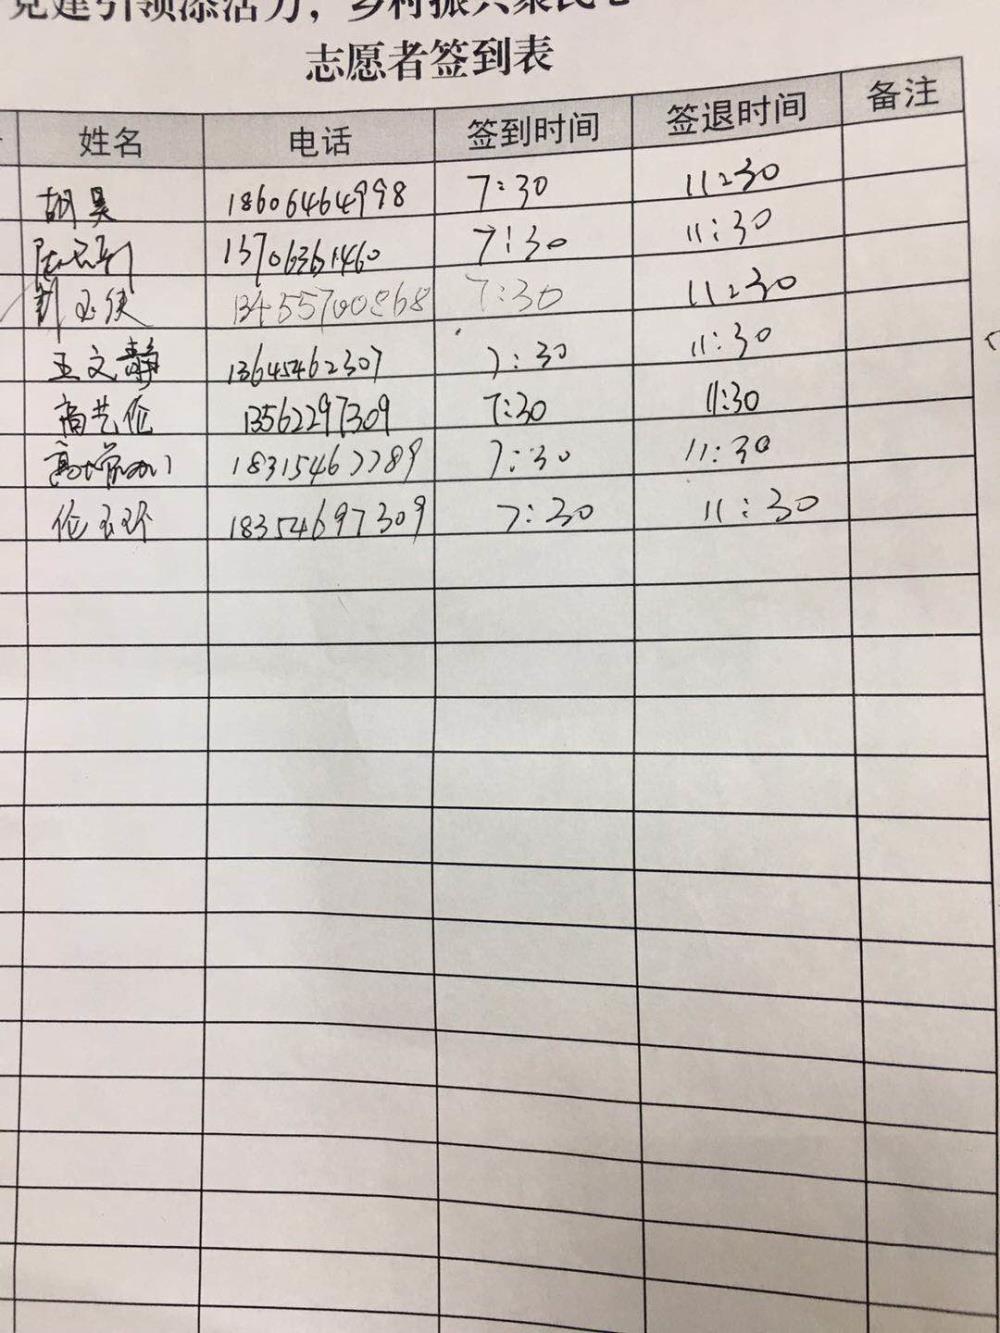 党建引领添活力，乡村振兴聚民心
志愿者签到表
姓名 电话 签到时间 签退时间 备注
胡昊 18606464998 7:30 11:30
13706361460 7:30 11:30
13455700868 7:30 11:30
王文静 13645462307 7:30 11:30
商艺伦 13562297309 7:30 11:30
18315462289 7:30 11:30
伦玉珍 18354697309 7:30 11:30